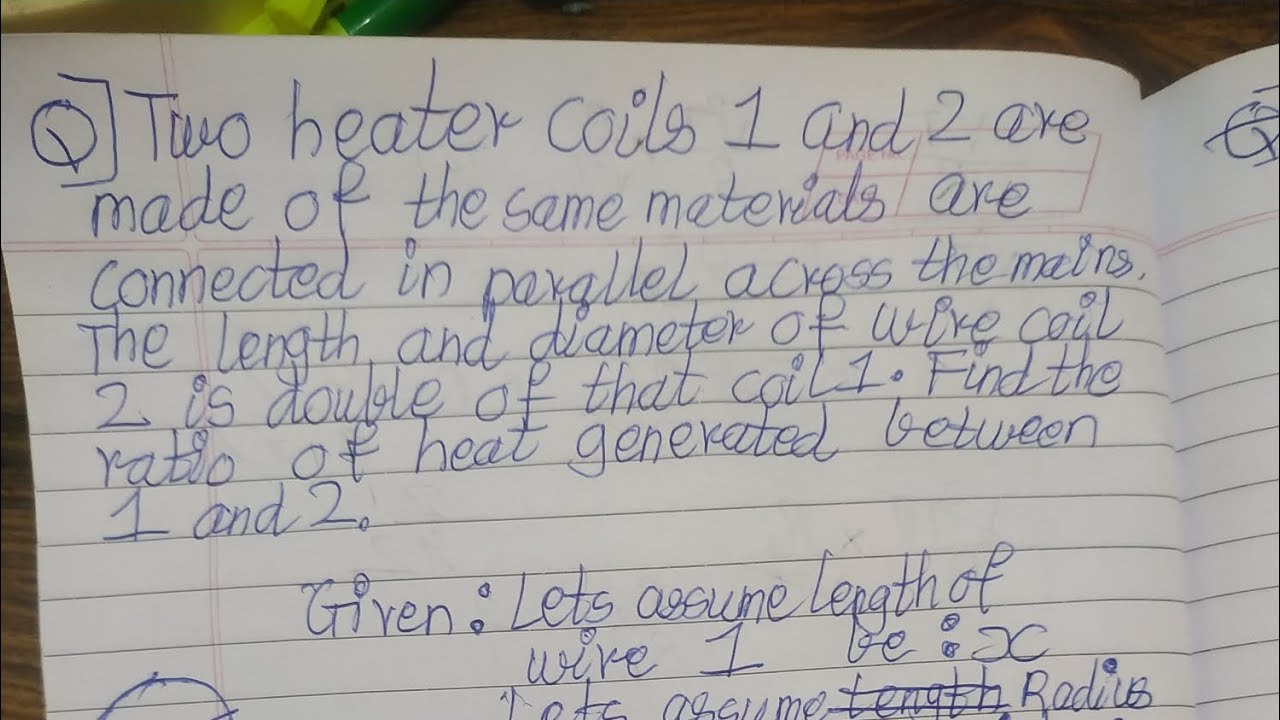 Q] Two heater coils 1 and 2 are
made of the same materials are
connected in parallel across the mains.
The length and diameter of wire coil
2 is double of that coil 1. Find the
ratio of heat generated between
1 and 2.
Given: Lets assume length of
wire 1 be : x
Lets assume Length Radius
PAGE No.
Q